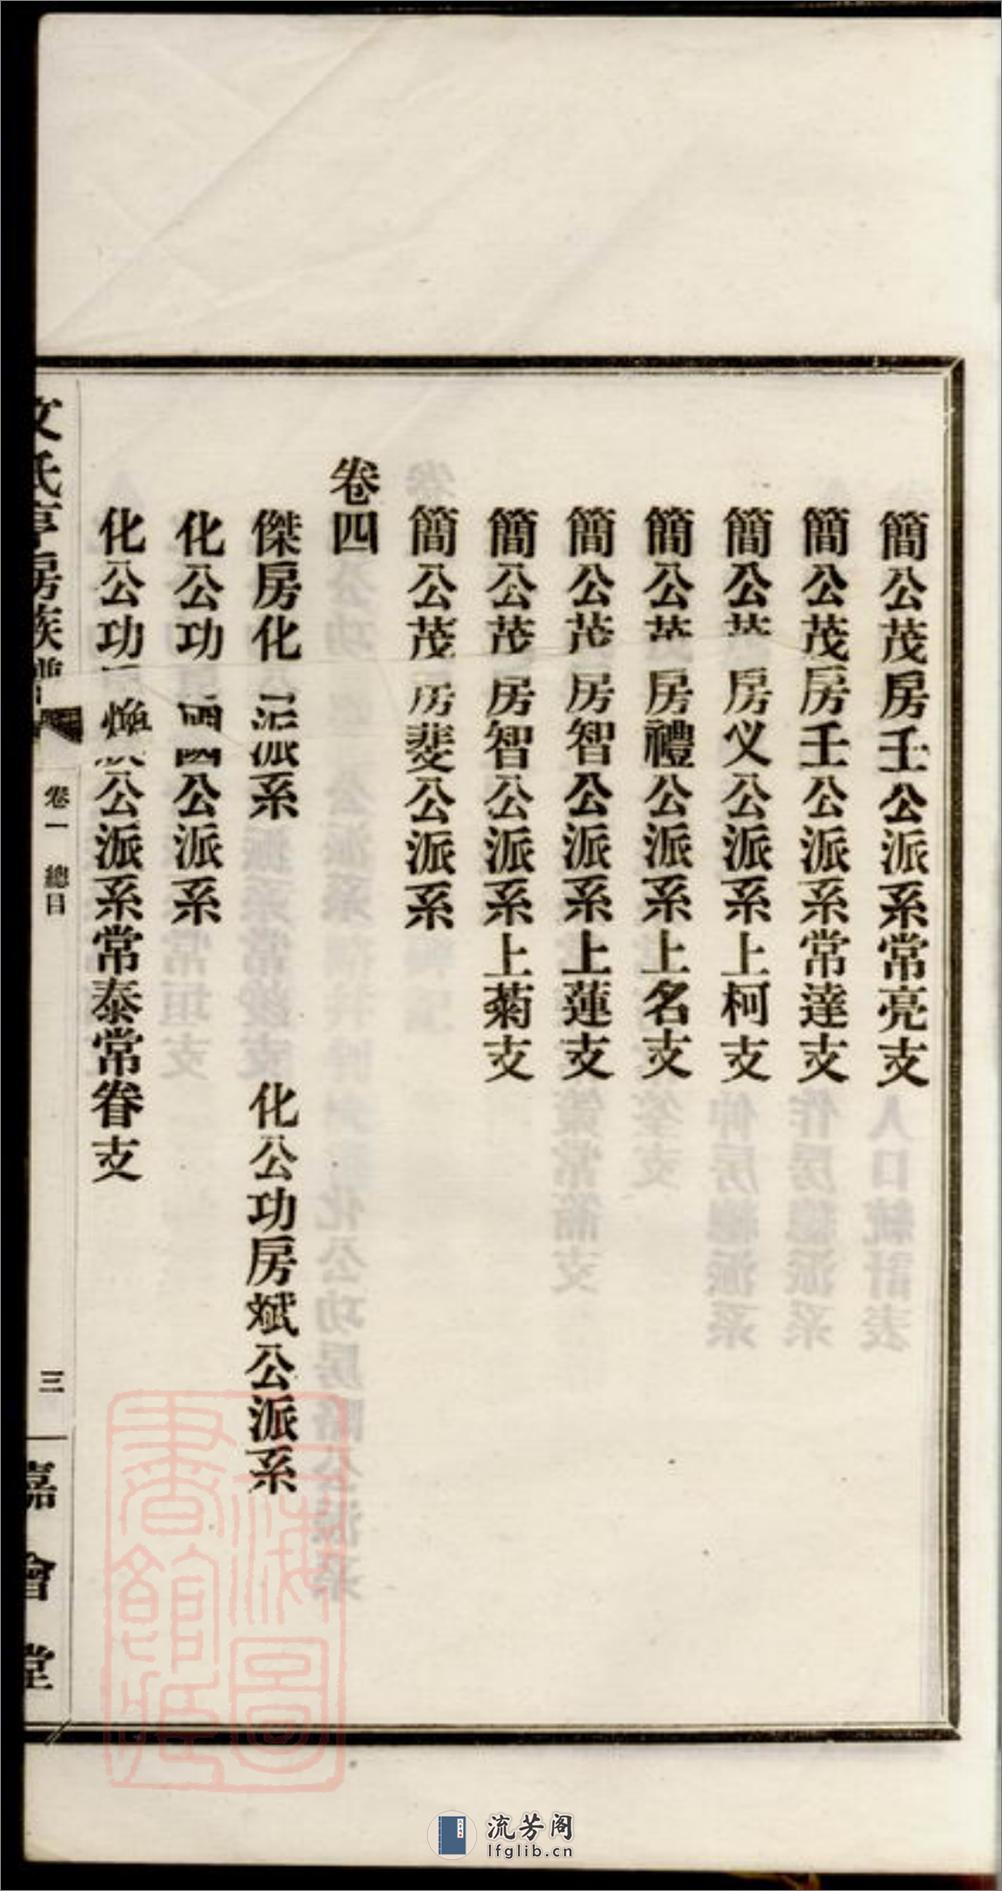 簡公茂房壬公派系常亮支
簡公茂房壬公派系常達支
簡公茂房义公派系上柯支
簡公茂房禮公派系上名支
簡公茂房智公派系上蓮支
簡公茂房智公派系上菊支
簡公茂房斐公派系
卷四
傑房化派系 化公功房斌公派系
化公功國公派系
化公功煥公派系常泰常眷支
文氏享房族譜
卷一 總目
三
嘉會堂
海圖書館
流芳阁
lfglib.cn